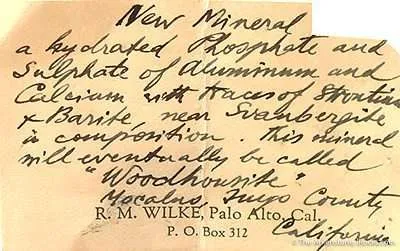 New Mineral
a hydrated Phosphate and
Sulphate of Aluminum and
Calcium with traces of Strontium
& Barite, near Svanbergite
in composition. This mineral
will eventually be called
"Woodhousite"
Mocalno, Inyo County
California
R. M. WILKE, Palo Alto, Cal.
P. O. Box 312